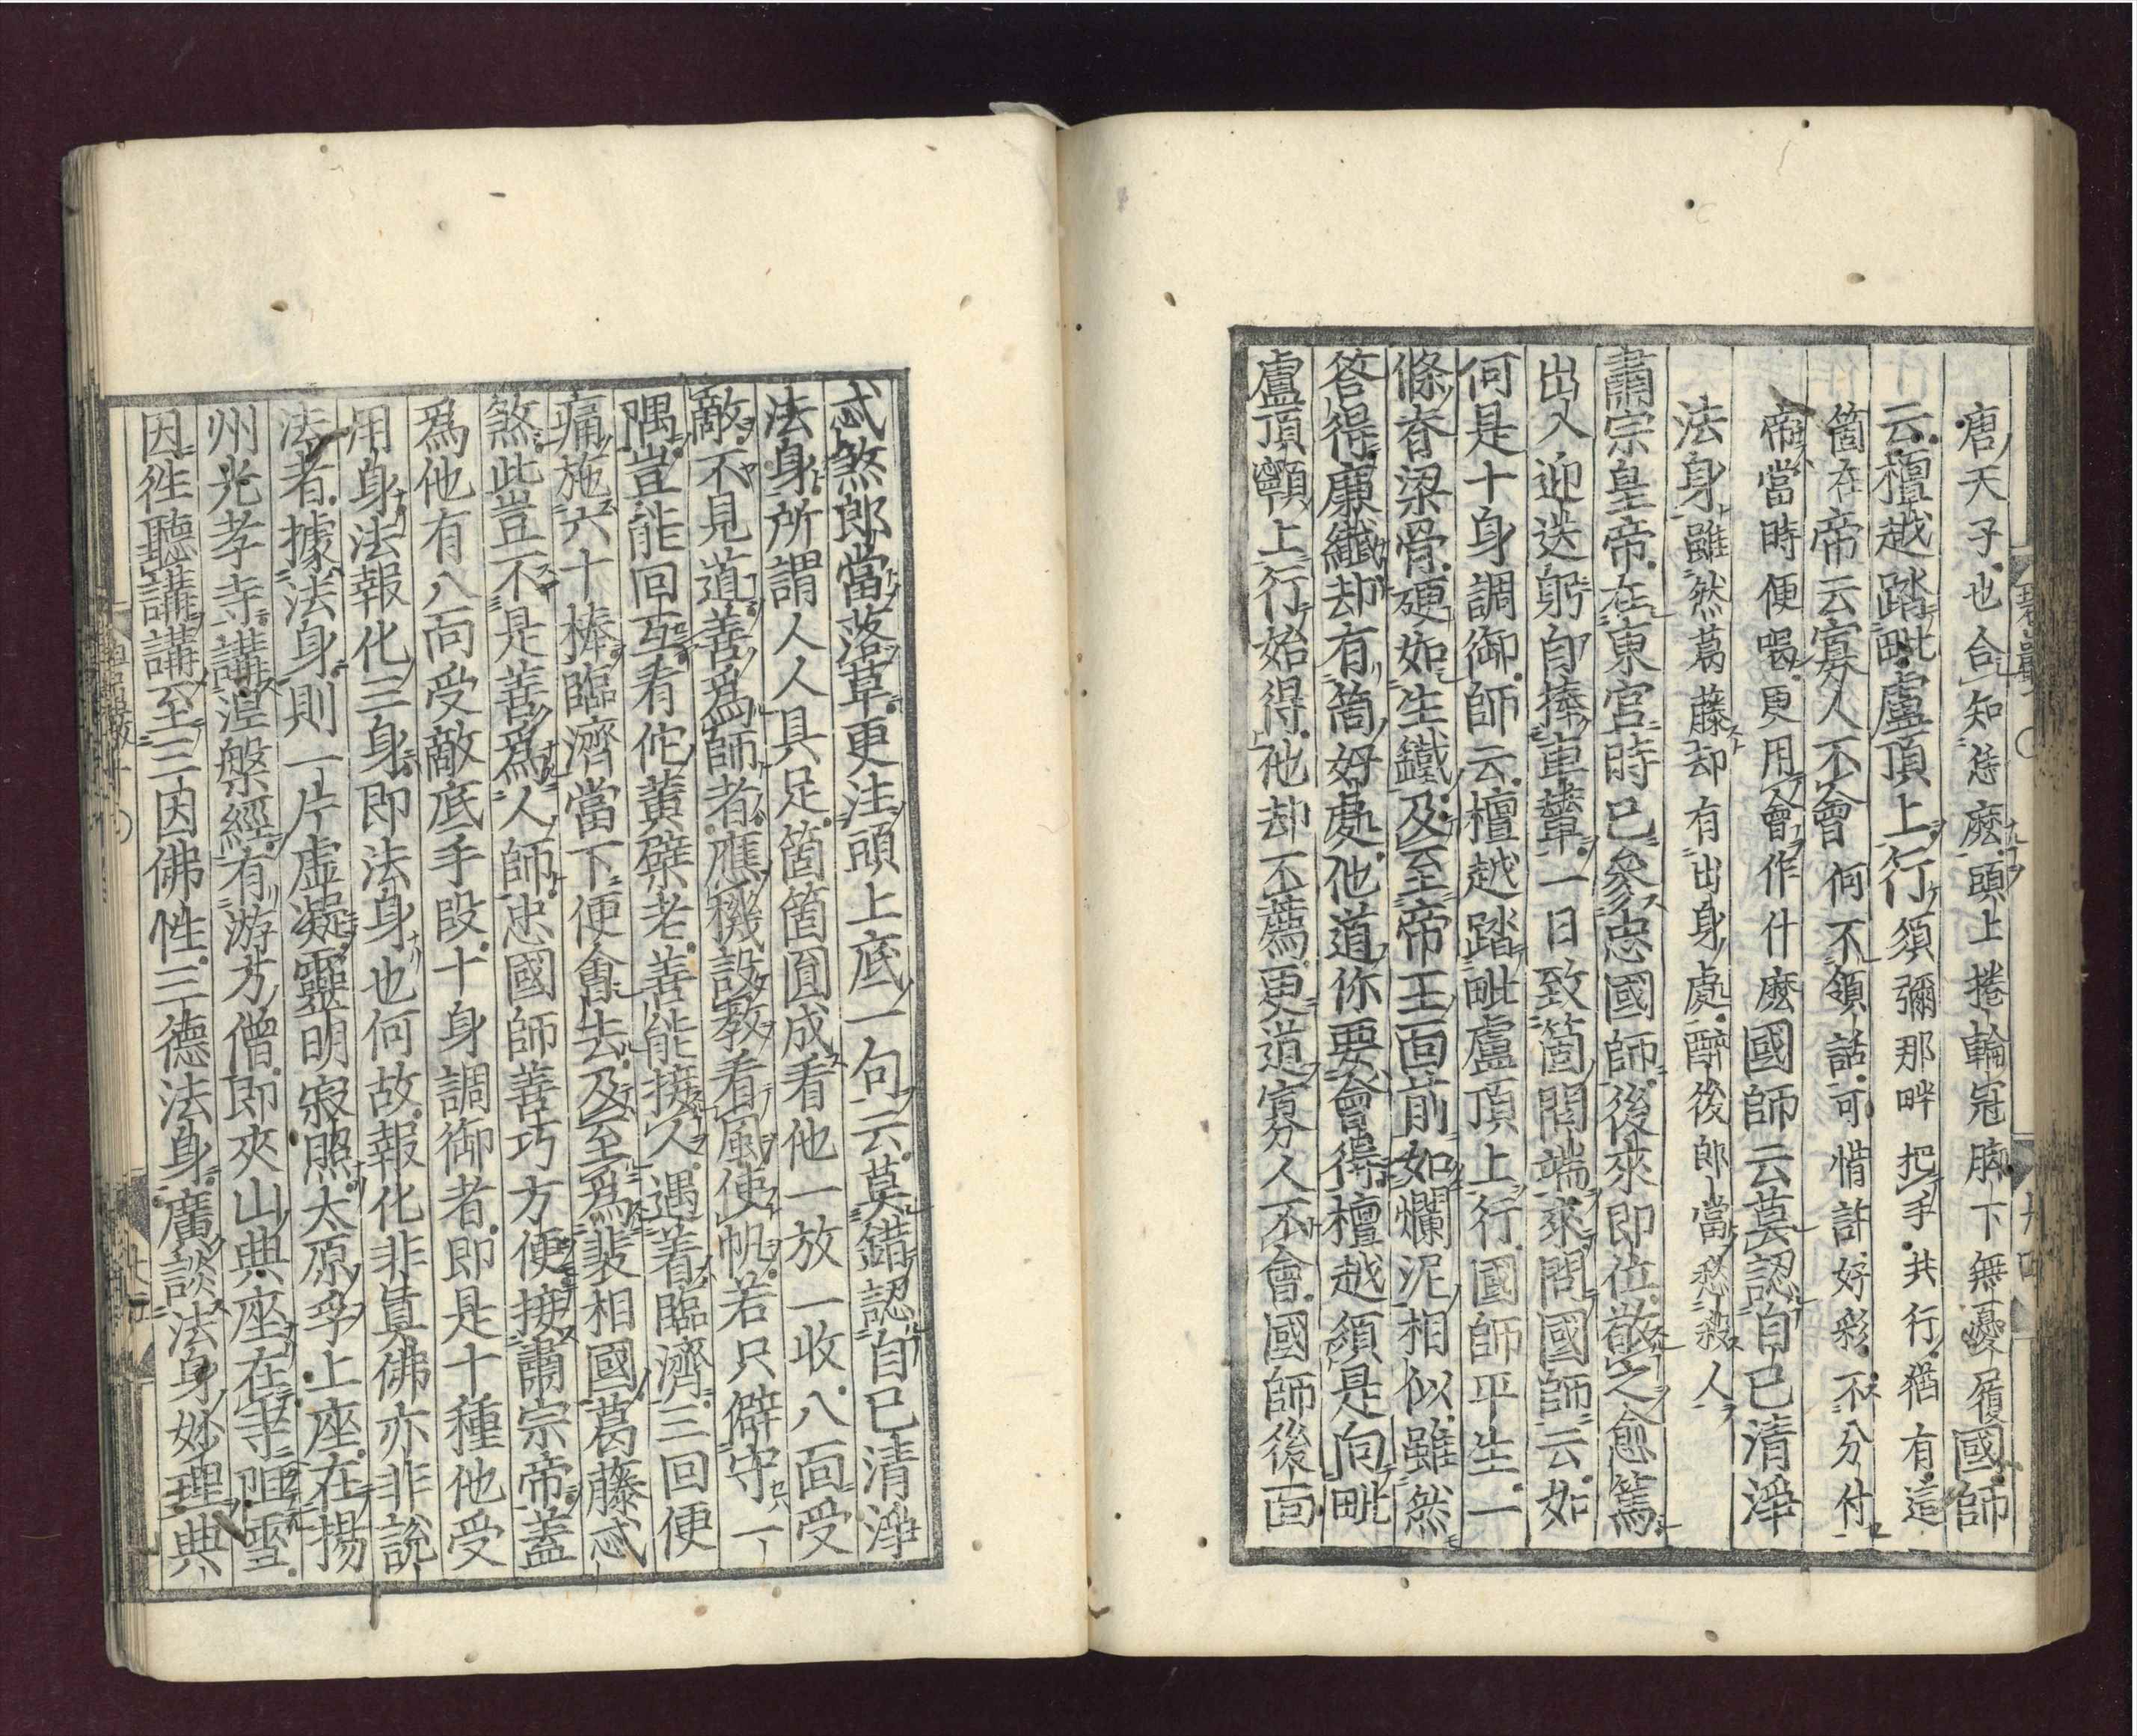 唐天子也合知恁麼頭上捲輪冠脚下無憂履國師
云檀越踏毗盧頂上行須彌那畔把手共行猶有這
箇在帝云寡人不會何不領話可惜許好彩不分付
帝當時便喝更用會作什麼國師云莫認自已清淨
法身雖然葛藤却有出身處醉後郎當愁殺人
肅宗皇帝在東宮時已參忠國師後來即位敬之愈篤
出入迎送躬自捧車輦一日致箇問端來問國師云如
何是十身調御師云檀越踏毗盧頂上行國師平生一
條脊梁骨硬如生鐵及至帝王面前如爛泥相似雖然
答得廉纖却有箇好處他道你要會得檀越須是向毗
盧頂𩕳上行始得他却不薦更道寡人不會國師後面
忒煞郎當落草更注頭上底一句云莫錯認自已清淨
法身所謂人人具足箇箇圓成看他一放一收八面受
敵不見道善爲師者應機設敎看風使帆若只僻守一
隅豈能回互看佗黃檗老善能接人遇着臨濟三回便
痛施六十棒臨濟當下便會去及至爲裴相國葛藤忒
煞此豈不是善爲人師忠國師善巧方便接肅宗帝蓋
爲他有八面受敵底手段十身調御者即是十種他受
用身法報化三身即法身也何故報化非眞佛亦非說
法者據法身則一片虛凝靈明寂照太原孚上座在揚
州光孝寺講涅槃經有游方僧即夾山典座在寺阻雪
因徃聽講講至三因佛性三德法身廣談法身妙理典